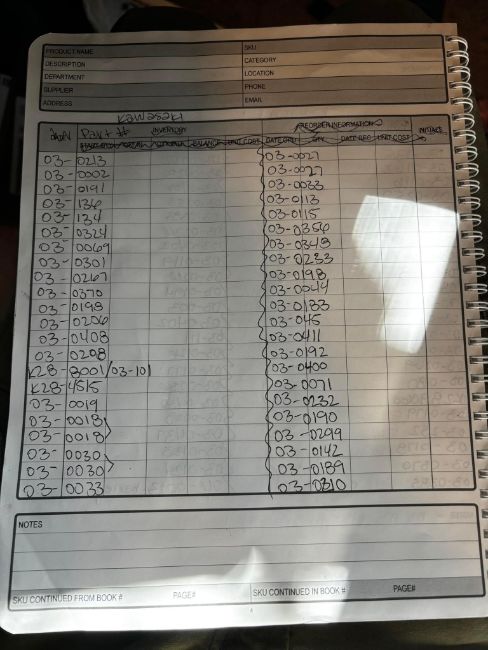 PRODUCT NAME SKU
DESCRIPTION CATEGORY
DEPARTMENT LOCATION
SUPPLIER PHONE
ADDRESS EMAIL
Kawasaki
Part # INVENTORY REORDER INFORMATION INITIALS
BALANCE UNIT COST DATE ORD QTY. DATE REC UNIT COST
03-0213 03-0027
03-0002 03-0027
03-0191 03-0033
03-136 03-0113
03-134 03-0115
03-0324 03-0356
03-0069 03-0349
03-0301 03-0233
03-0267 03-0198
03-0370 03-0044
03-0198 03-0133
03-0206 03-045
03-0408 03-0411
03-0208 03-0192
K28-8001/03-101 03-0400
K28-4515 03-0071
03-0019 03-0232
03-0018 03-0190
03-0018 03-0299
03-0030 03-0142
03-0030 03-0189
03-0033 03-0310
NOTES
SKU CONTINUED FROM BOOK # PAGE# SKU CONTINUED IN BOOK # PAGE#